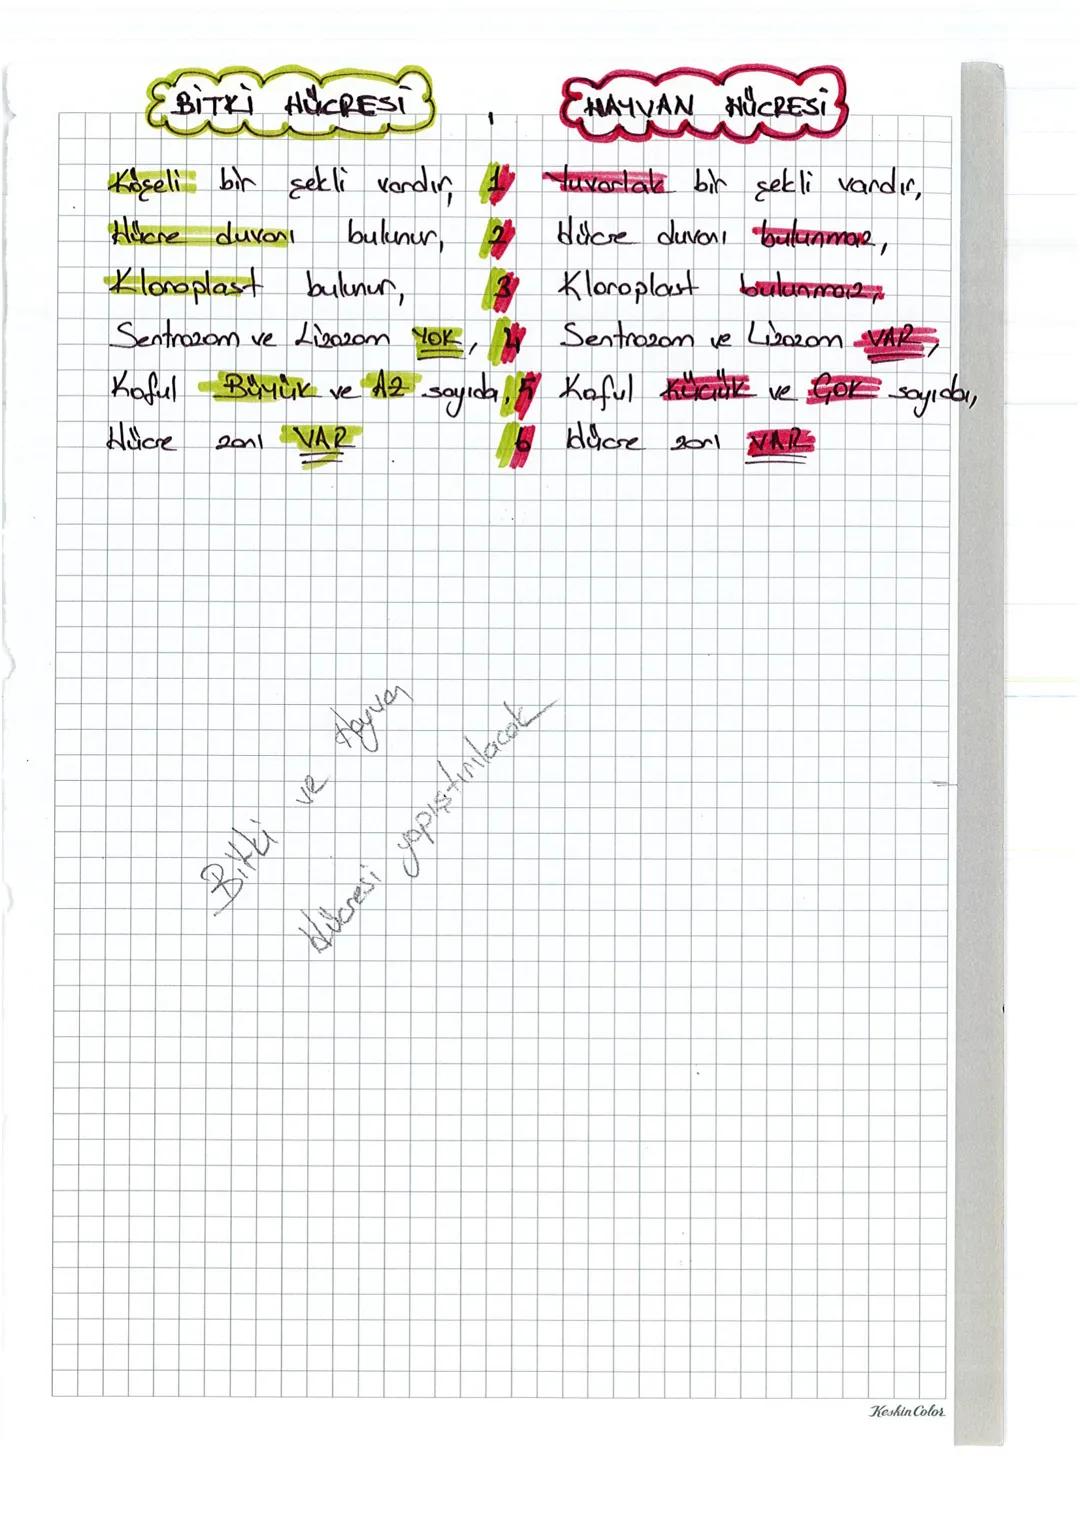 BİTKİ HÜCRESİ HAYVAN HÜCRESİ
Köşeli bir şekli vardır, 1 Yuvarlak bir şekli vardır,
Hücre duvarı bulunur, 2 Hücre duvarı bulunmaz,
Kloroplast bulunur, 3 Kloroplast bulunmaz,
Sentrozom ve Lizozom YOK, 4 Sentrozom ve Lizozom VAR,
Koful Büyük ve Az sayıda, 5 Koful Küçük ve ÇOK sayıda,
Hücre zarı VAR 6 Hücre zarı VAR
Bitki ve Hayvan
Hücresi yapıştırılacak
Keskin Color